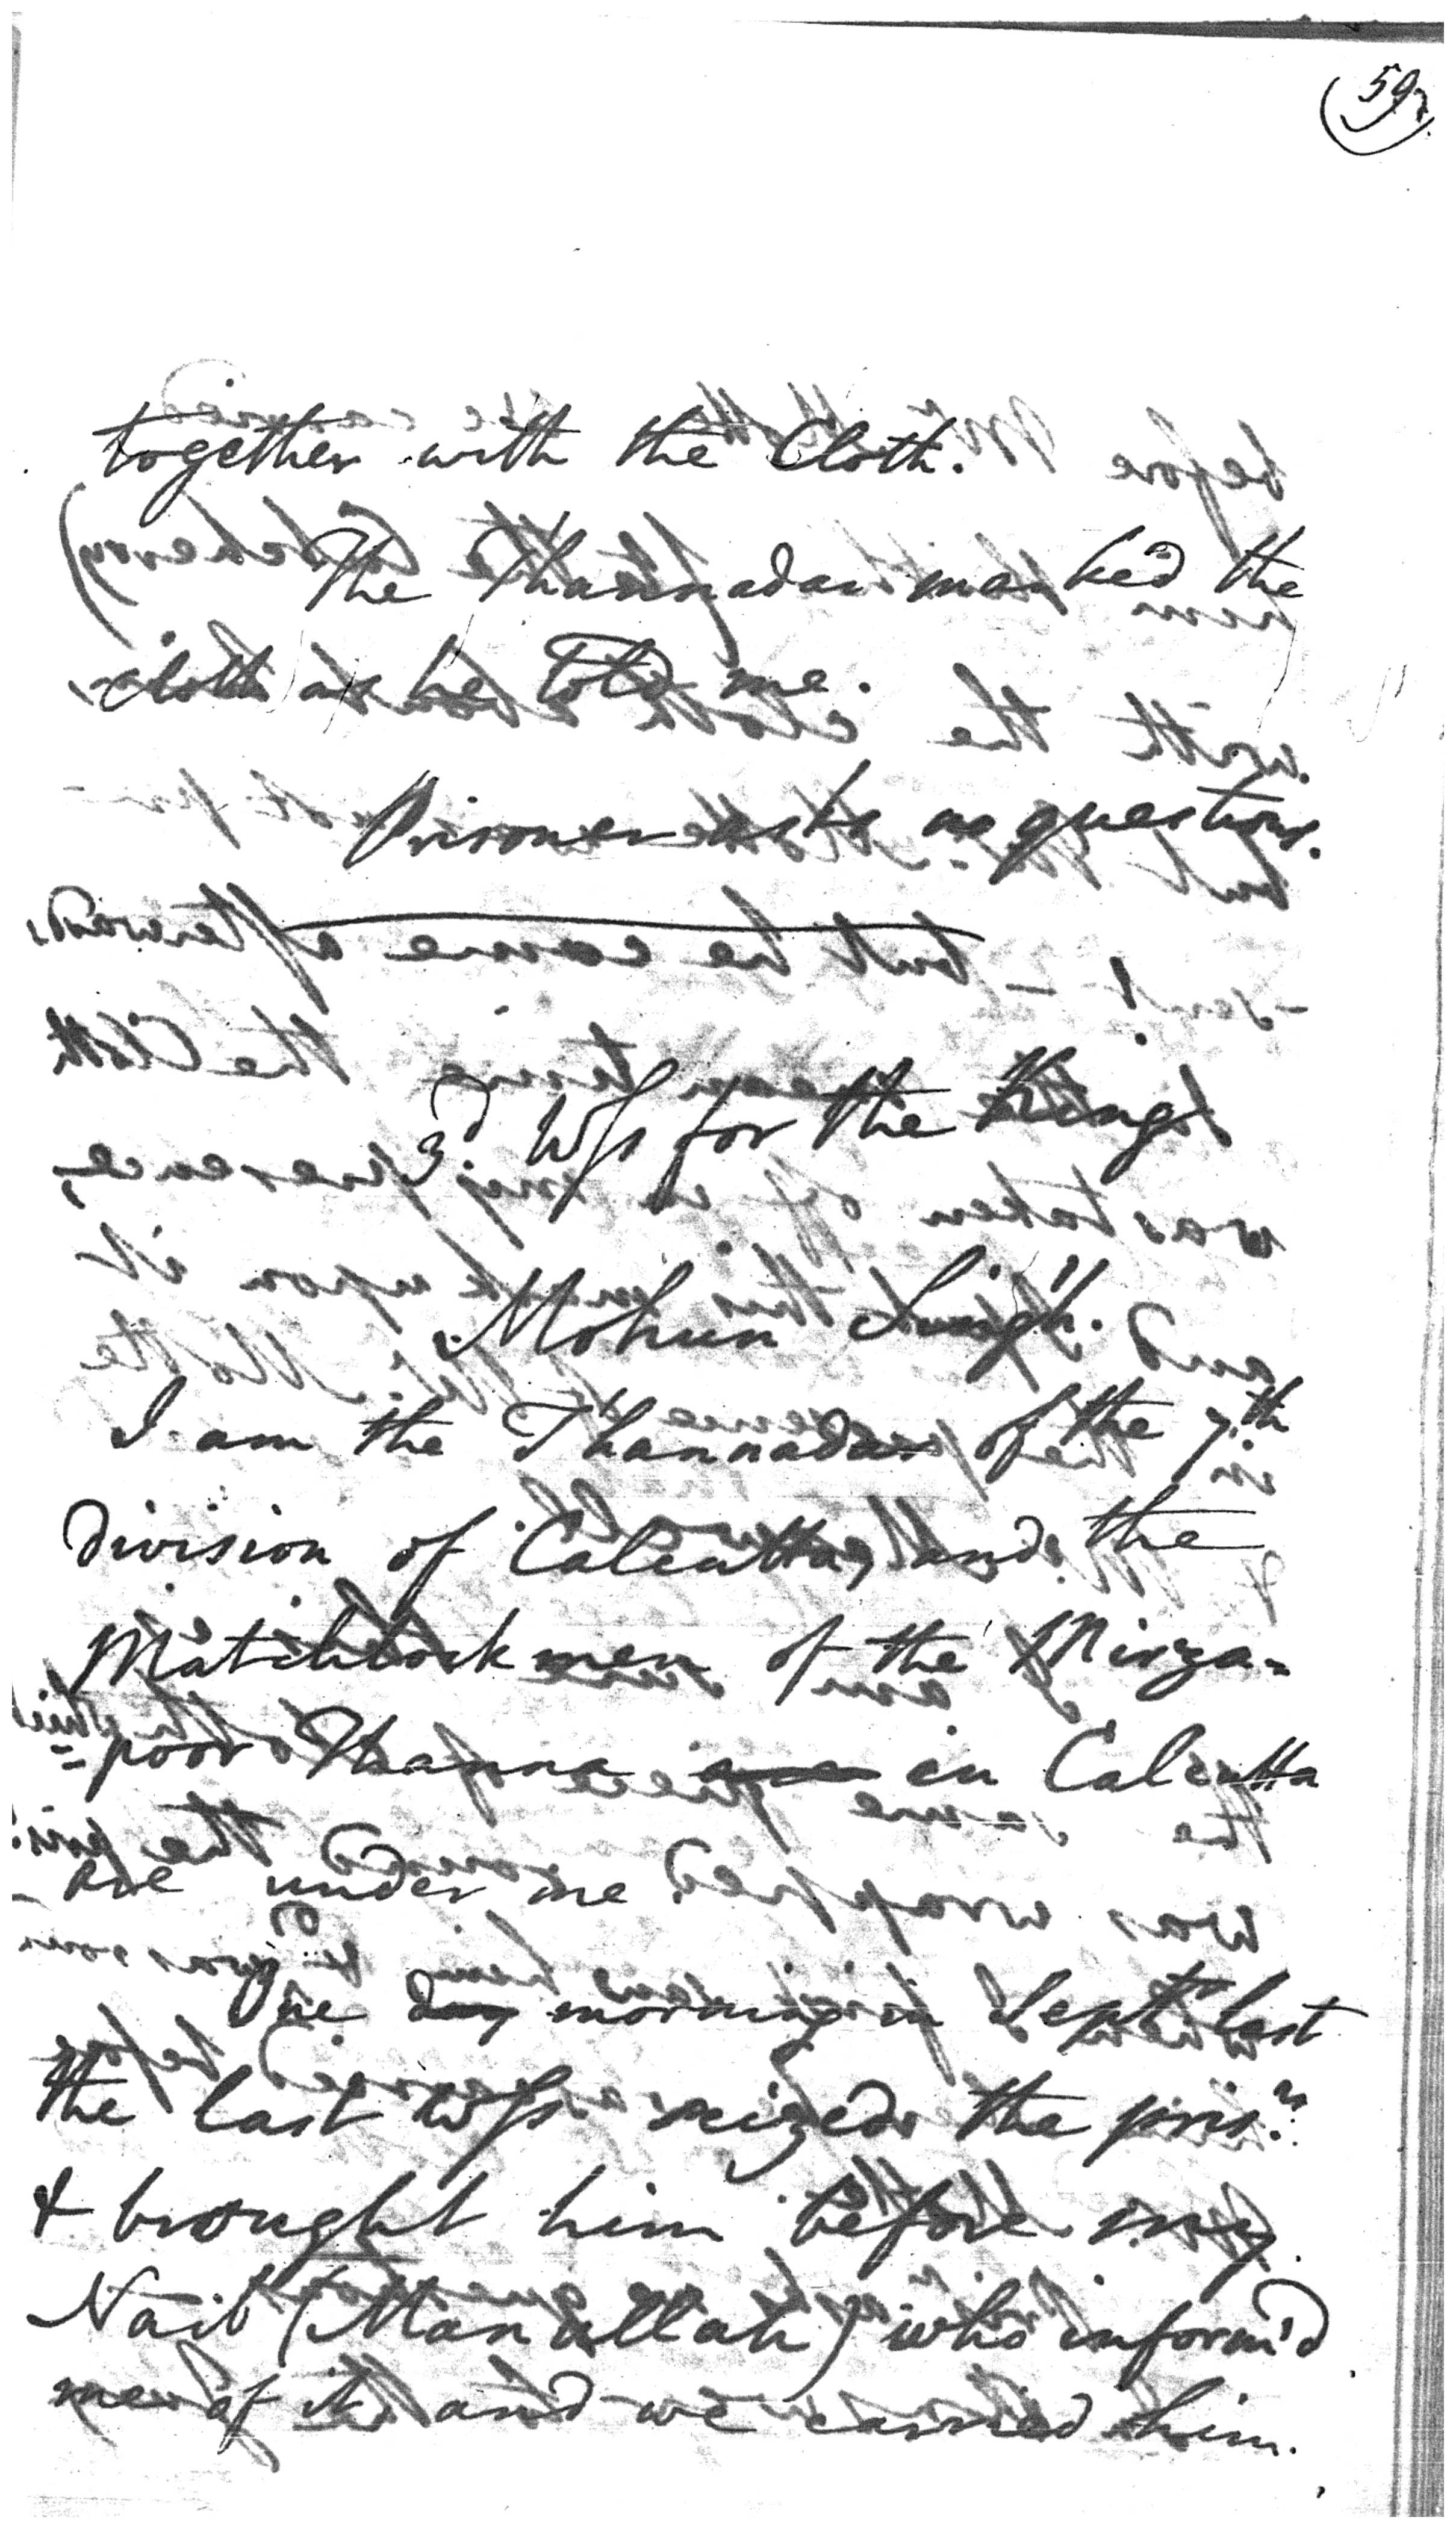 59
together with the Cloth.
The Thannadar marked the
cloth as he told me.
Prisoner asks no questions.
3d Wss for the King
Mohun Singh.
I am the Thannadar of the 7th
division of Calcutta, and the
Matchlock men of the Mirza=
=poor Thanna are in Calcutta
are under me.
One day morning in Septr last
the last Wss seized the prisr
& brought him before my
Naib (Manullah) who inform'd
me of it and we carried him.